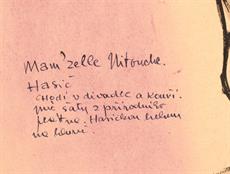 Mam'zelle Nitouche.
Hasič
chodí v divadle a kouří.
má šaty z přírodního
plátna. Hasičskou helmu
na hlavě.